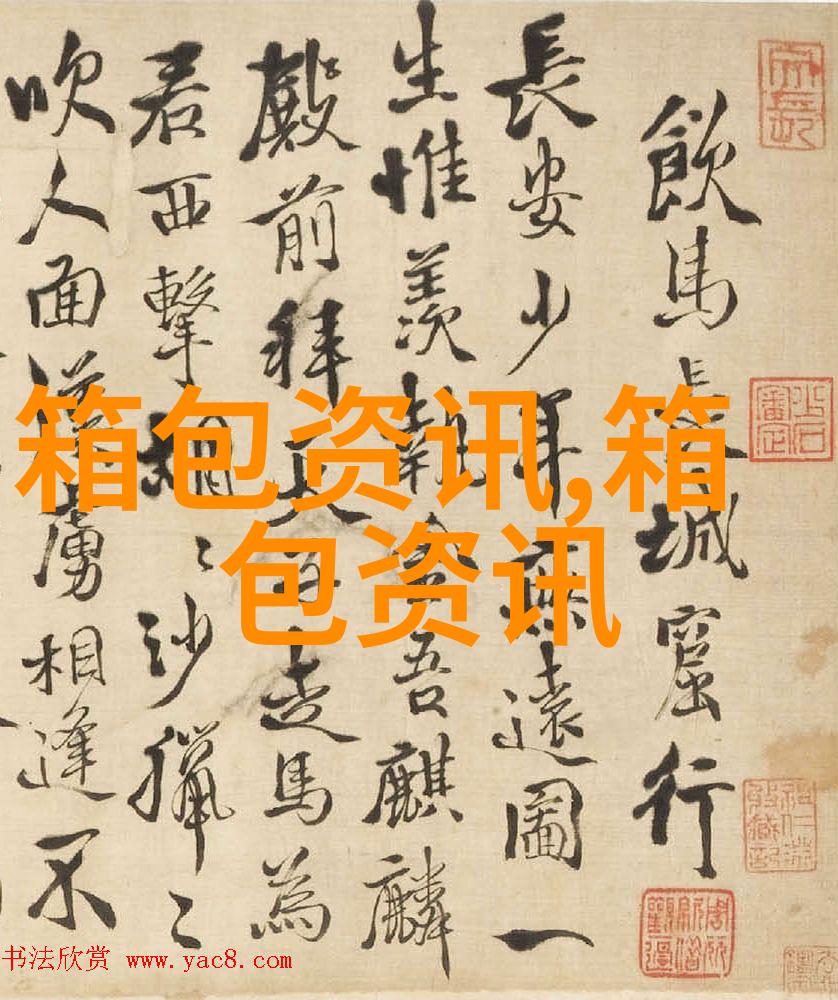 飲馬長城窟行
長安少年無遠圖一
生惟羨執金吾麒麟
殿前拜天子走馬為
君西擊胡〻沙獵〻
吹人面漢虜相逢不
箱包资讯,箱
包资讯
书法欣赏 www.yac8.com